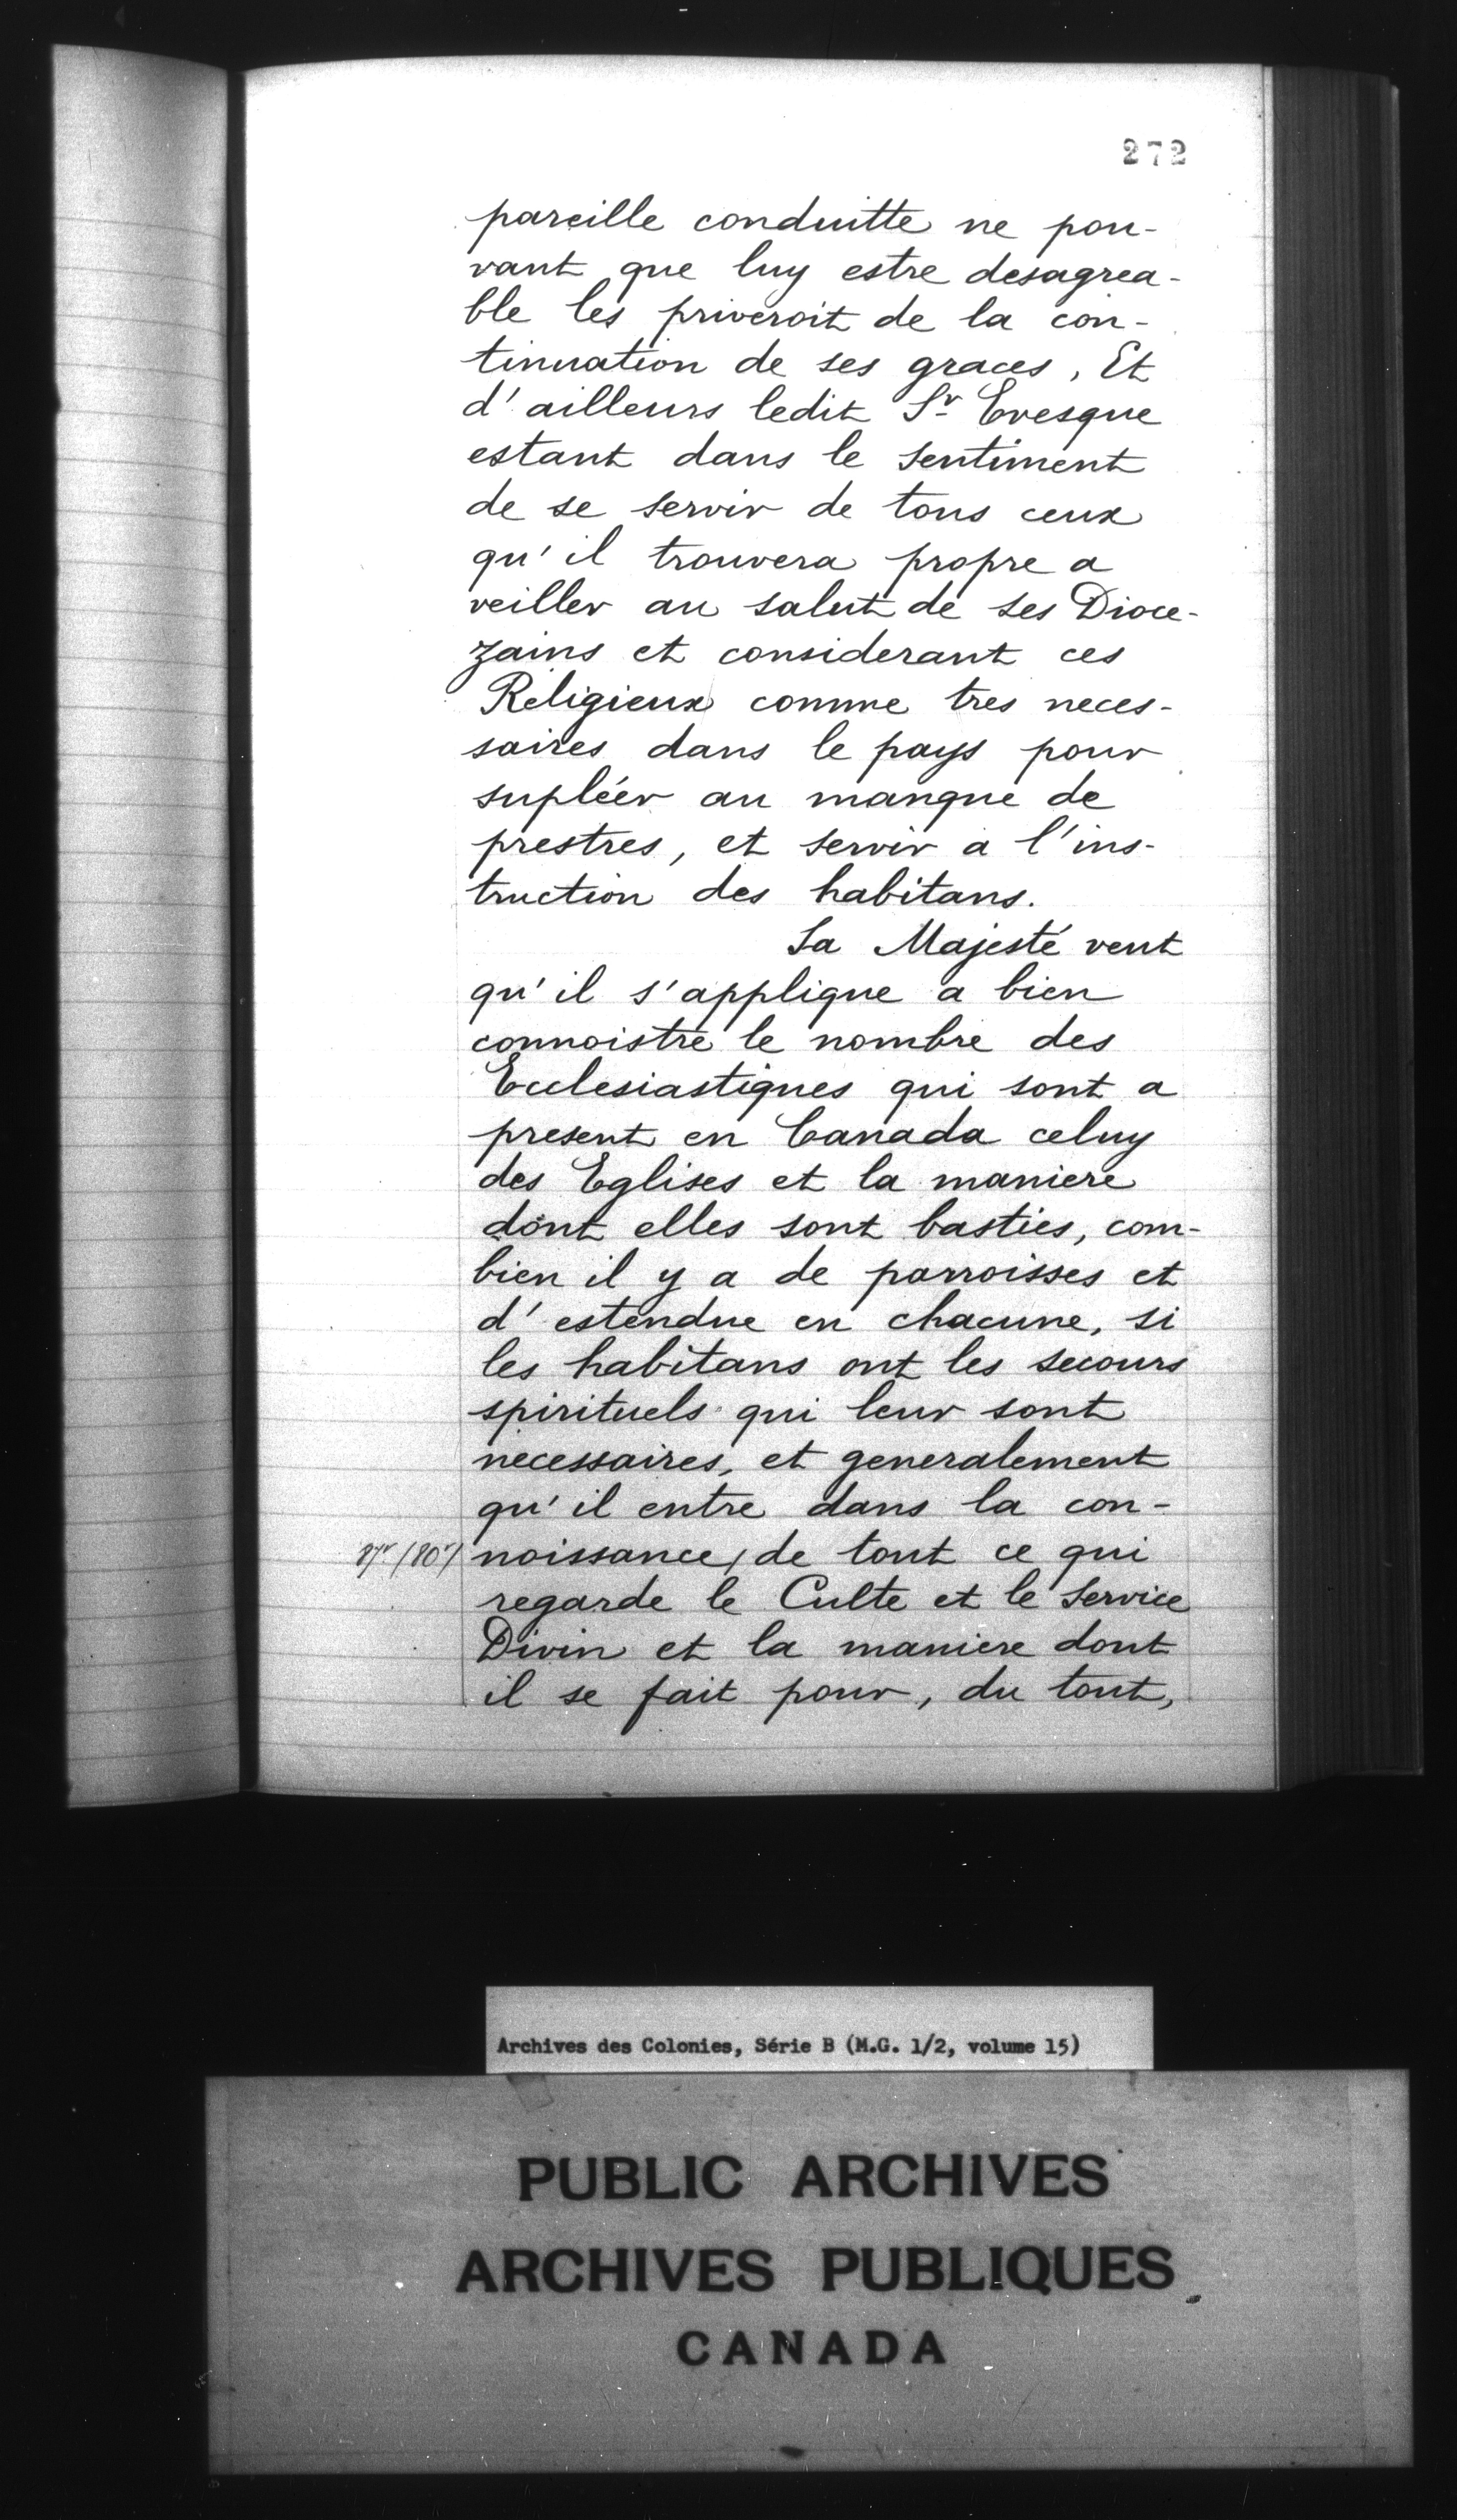 272
pareille conduitte ne pou-
vant que luy estre desagrea-
ble les priveroit de la con-
tinuation de ses graces, Et
d'ailleurs ledit Sr Evesque
estant dans le sentiment
de se servir de tous ceux
qu'il trouvera propre a
veiller au salut de ses Dioce-
zains et considerant ces
Religieux comme tres neces-
saires dans le pays pour
supléér au manque de
prestres, et servir a l'ins-
truction des habitans.
Sa Majesté veut
qu'il s'applique a bien
connoistre le nombre des
Ecclesiastiques qui sont a
present en Canada celuy
des Eglises et la maniere
dont elles sont basties, com-
bien il y a de parroisses et
d'estendue en chacune, si
les habitans ont les secours
spirituels qui leur sont
necessaires, et generalement
qu'il entre dans la con-
noissance, de tout ce qui
regarde le Culte et le Service
Divin et la maniere dont
il se fait pour, du tout,
Archives des Colonies, Série B (M.G. 1/2, volume 15)
PUBLIC ARCHIVES
ARCHIVES PUBLIQUES
CANADA